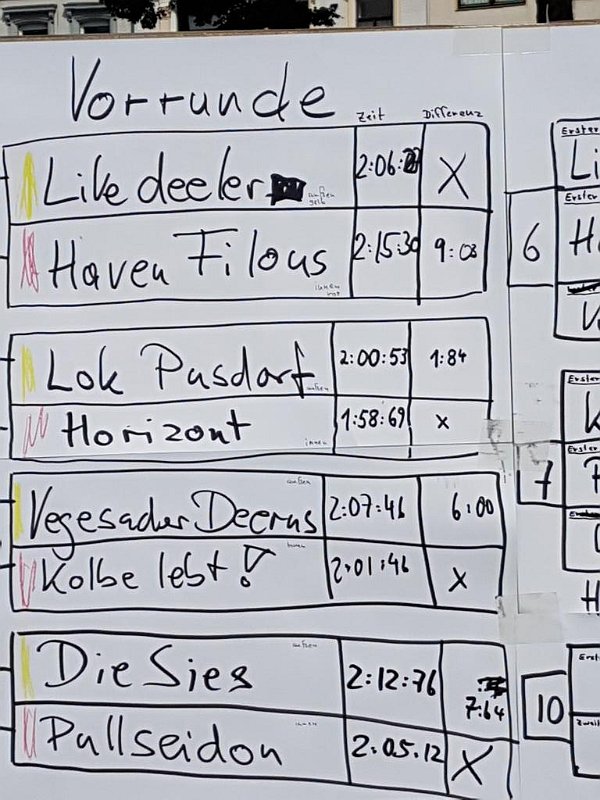 Vorrunde
Zeit Differenz
Likedeeler 2:06: X
außen
gelb
Haven Filous 2:15:30 9:03
innen
rot
Lok Pusdorf 2:00:53 1:84
außen
Horizont 1:58:69 x
innen
außen
Vegesacker Deerns 2:07:46 6:00
innen
Kolbe lebt! 2:01:46 x
außen
Die Sies 2:12:76 7:64
innen
Pullseidon 2:05.12 X
Erster
Li
Erster
6 H
V
Erster
K
Erster
7
H
10
Zweit